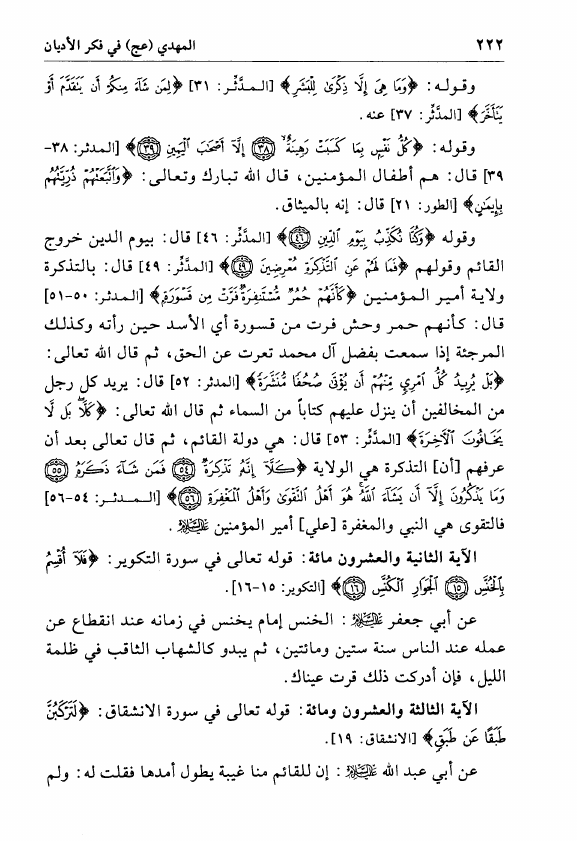 ٢٢٢ المهدي (عج) في فكر الأديان
وقوله: ﴿وَمَا هِيَ إِلَّا ذِكْرَىٰ لِلْبَشَرِ﴾ [المدثّر: ٣١] ﴿لِمَن شَاءَ مِنكُمْ أَن يَتَقَدَّمَ أَوْ
يَتَأَخَّرَ﴾ [المدثّر: ٣٧] عنه.
وقوله: ﴿كُلُّ نَفْسٍ بِمَا كَسَبَتْ رَهِينَةٌ ٣٨ إِلَّا أَصْحَابَ الْيَمِينِ ٣٩﴾ [المدثر: ٣٨-
٣٩] قال: هم أطفال المؤمنين، قال الله تبارك وتعالى: ﴿وَاتَّبَعَتْهُمْ ذُرِّيَّتُهُم
بِإِيمَانٍ﴾ [الطور: ٢١] قال: إنه بالميثاق.
وقوله ﴿وَكُنَّا نُكَذِّبُ بِيَوْمِ الدِّينِ ٤٦﴾ [المدثّر: ٤٦] قال: بيوم الدين خروج
القائم وقولهم ﴿فَمَا لَهُمْ عَنِ التَّذْكِرَةِ مُعْرِضِينَ ٤٩﴾ [المدثّر: ٤٩] قال: بالتذكرة
ولاية أمير المؤمنين ﴿كَأَنَّهُمْ حُمُرٌ مُّسْتَنفِرَةٌ فَرَّتْ مِن قَسْوَرَةٍ﴾ [المدثر: ٥٠-٥١]
قال: كأنهم حمر وحش فرت من قسورة أي الأسد حين رأته وكذلك
المرجئة إذا سمعت بفضل آل محمد تعرت عن الحق، ثم قال الله تعالى:
﴿بَلْ يُرِيدُ كُلُّ امْرِئٍ مِّنْهُمْ أَن يُؤْتَىٰ صُحُفًا مُّنَشَّرَةً﴾ [المدثر: ٥٢] قال: يريد كل رجل
من المخالفين أن ينزل عليهم كتاباً من السماء ثم قال الله تعالى: ﴿كَلَّا بَل لَّا
يَخَافُونَ الْآخِرَةَ﴾ [المدّثر: ٥٣] قال: هي دولة القائم، ثم قال تعالى بعد أن
عرفهم [أن] التذكرة هي الولاية ﴿كَلَّا إِنَّهُ تَذْكِرَةٌ ٥٤ فَمَن شَاءَ ذَكَرَهُ ٥٥
وَمَا يَذْكُرُونَ إِلَّا أَن يَشَاءَ اللَّهُ هُوَ أَهْلُ التَّقْوَىٰ وَأَهْلُ الْمَغْفِرَةِ ٥٦﴾ [المدثر: ٥٤-٥٦]
فالتقوى هي النبي والمغفرة [علي] أمير المؤمنين عليه السلام.
الآية الثانية والعشرون مائة: قوله تعالى في سورة التكوير: ﴿فَلَا أُقْسِمُ
بِالْخُنَّسِ ١٥ الْجَوَارِ الْكُنَّسِ ١٦﴾ [التكوير: ١٥-١٦].
عن أبي جعفر عليه السلام: الخنس إمام يخنس في زمانه عند انقطاع عن
عمله عند الناس سنة ستين ومائتين، ثم يبدو كالشهاب الثاقب في ظلمة
الليل، فإن أدركت ذلك قرت عيناك.
الآية الثالثة والعشرون ومائة: قوله تعالى في سورة الانشقاق: ﴿لَتَرْكَبُنَّ
طَبَقًا عَن طَبَقٍ﴾ [الانشقاق: ١٩].
عن أبي عبد الله عليه السلام: إن للقائم منا غيبة يطول أمدها فقلت له: ولم